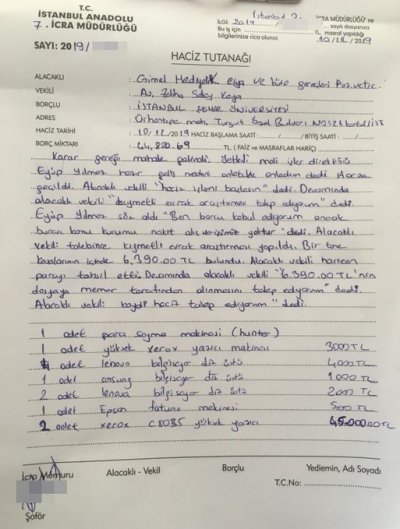 T.C.
İSTANBUL ANADOLU
7. İCRA MÜDÜRLÜĞÜ
SAYI: 2019/
İstanbul
İLGİ: 2019/ İCRA MÜDÜRLÜĞÜ'ne
sayılı dosyanıza
TL. masraf yapıldığı
bilgilerinize rica olunur. 10/12/2019
HACİZ TUTANAĞI
ALACAKLI Gimel Hediyelik eşya ve büro gereçleri Paz ve tic.
VEKİLİ Av. Zeliha Kaya
BORÇLU İSTANBUL ŞEHİR ÜNİVERSİTESİ
ADRES Orhantepe mah. Turgut Özal Bulvarı NO:
HACİZ TARİHİ 10/12/2019 HACİZ BAŞLAMA SAATİ: / BİTİŞ SAATİ: /
BORÇ MİKTARI 44,820.69 TL. ( FAİZ ve MASRAFLAR HARİÇ)
Karar gereği mahale gelindi. Yetkili mali işler direktörü
Eyüp Yılmaz hazır geliş nedeni anlatıldı anladım dedi. Hacze
geçildi. Alacaklı vekili "haciz işlemi başlasın" dedi. Devamında
alacaklı vekili "kıymetli evrak araştırması talep ediyorum" dedi.
Eyüp Yılmaz söz aldı "Ben borcu kabul ediyorum ancak
burası kamu kurumu nakit alış verişimiz yoktur" dedi. Alacaklı
vekili talebince kıymetli evrak araştırması yapıldı. Bir tane
kasanın içinde 6,390.00 TL bulundu. Alacaklı vekili haricen
parayı tahsil etti. Devamında alacaklı vekili "6.390.00 TL'nin
dosyaya memur tarafından alınmasını talep ediyorum" dedi.
Alacaklı vekili kaydi haciz talep ediyorum" dedi.
1 adet para sayma makinesi (hunter)
1 adet yüksek xerox yazıcı makinası 3000 TL
4 adet lenova bilgisayar diz üstü 4000 TL
1 adet bilgisayar diz üstü 1000 TL
2 adet lenova bilgisayar diz üstü 2000 TL
1 adet Epson fatura makinesi 500 TL
2 adet xerox C8035 yüksek yazıcı 45.000.00 TL
İcra Memuru Alacaklı - Vekil Borçlu Yediemin, Adı Soyadı
T.C.No:
Şoför